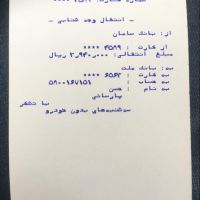 - انتقال وجه شتابی -
از: بانک سامان
از کارت : ۴۵۸۹ ****
مبلغ انتقالی: ۳,۹۴۰,۰۰۰ ریال
به: بانک ملت
به کارت : ۶۵۶۳ ****
به حساب : ۵۸۰۰۱۶۷۱۵۱
به نام : حسن
پارسائی
با تشکر
سه‌شنبه‌های بدون خودرو